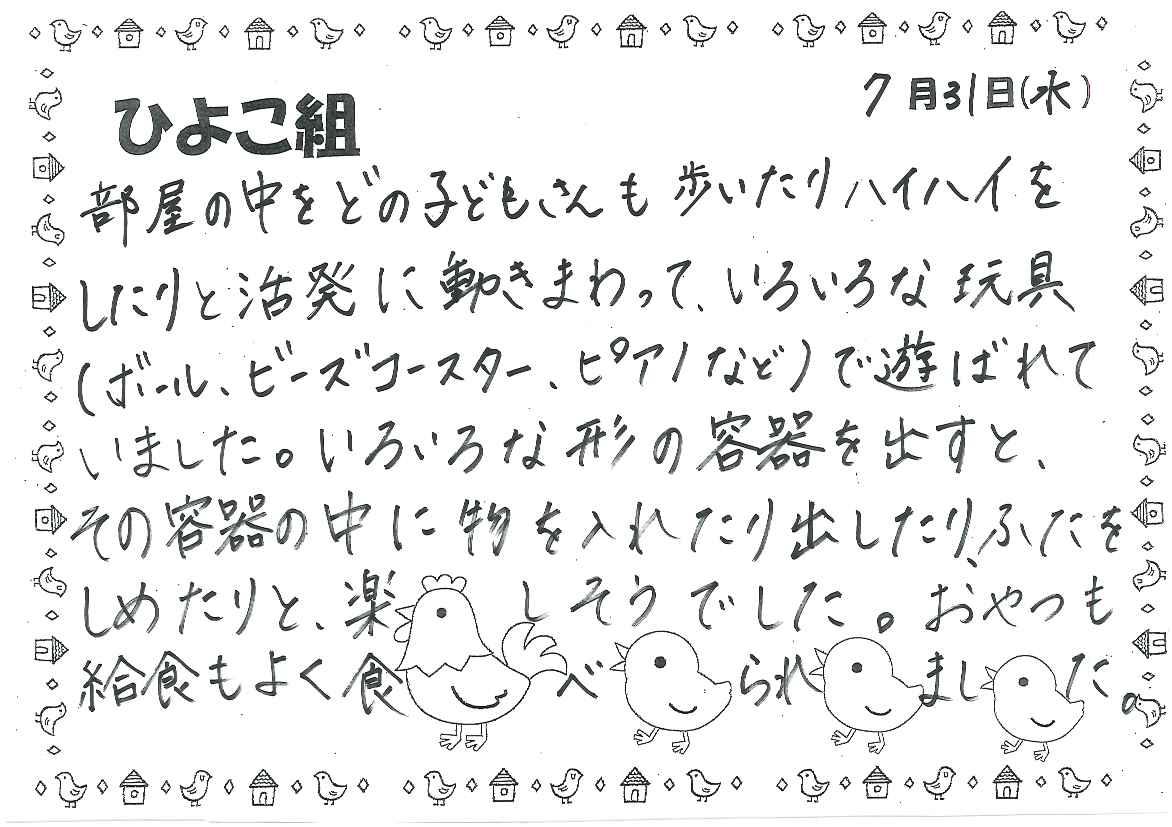 7月31日(水)
ひよこ組
部屋の中をどの子どもさんも歩いたりハイハイを
したりと活発に動きまわって、いろいろな玩具
(ボール、ビーズコースター、ピアノなど)で遊ばれて
いました。いろいろな形の容器を出すと、
その容器の中に物を入れたり出したり、ふたを
しめたりと、楽しそうでした。おやつも
給食もよく食べられました。